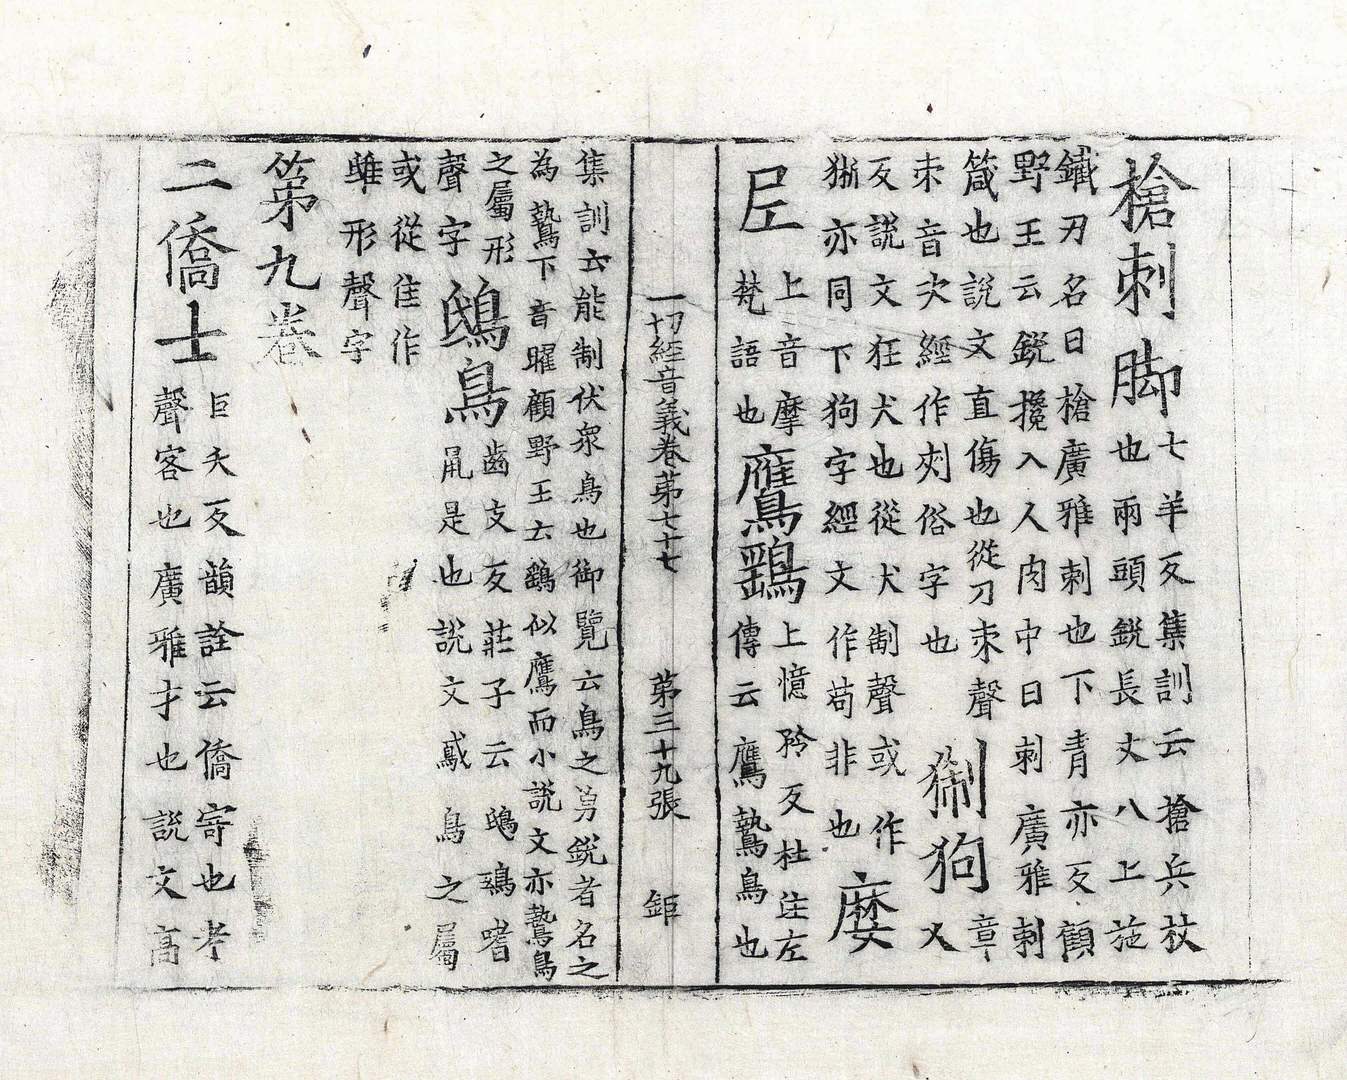 槍刺脚七羊反集訓云槍兵杖
也兩頭銳長丈八上施
鐵刃名曰槍廣雅刺也下青亦反顧
野王云銳攙入人肉中曰刺廣雅刺
箴也說文直傷也從刀朿聲
朿音次經作刾俗字也
猘狗章
又
反說文狂犬也從犬制聲或作
狾亦同下狗字經文作苟非也
上音摩
梵語也
鷹鷂上憶矜反杜注左
傳云鷹鷙鳥也
一切經音義卷第七十七 第三十九張 鉅
集訓云能制伏衆鳥也御覽云鳥之勇銳者名之
為鷙下音曜顧野王云鷂似鷹而小說文亦鷙鳥
之屬形
聲字
鴟鳥齒支反莊子云鴟鵶嗜
鼠是也說文鳶鳥之屬
或從隹作
雎形聲字
第九卷
二僑士巨夭反韻詮云僑寄也考
聲客也廣雅才也說文高